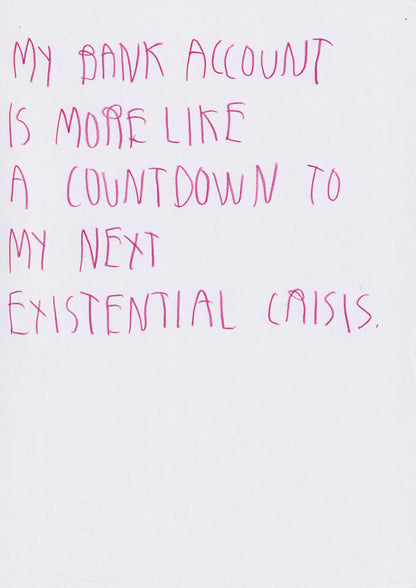 MY BANK ACCOUNT
IS MORE LIKE
A COUNTDOWN TO
MY NEXT
EXISTENTIAL CRISIS.